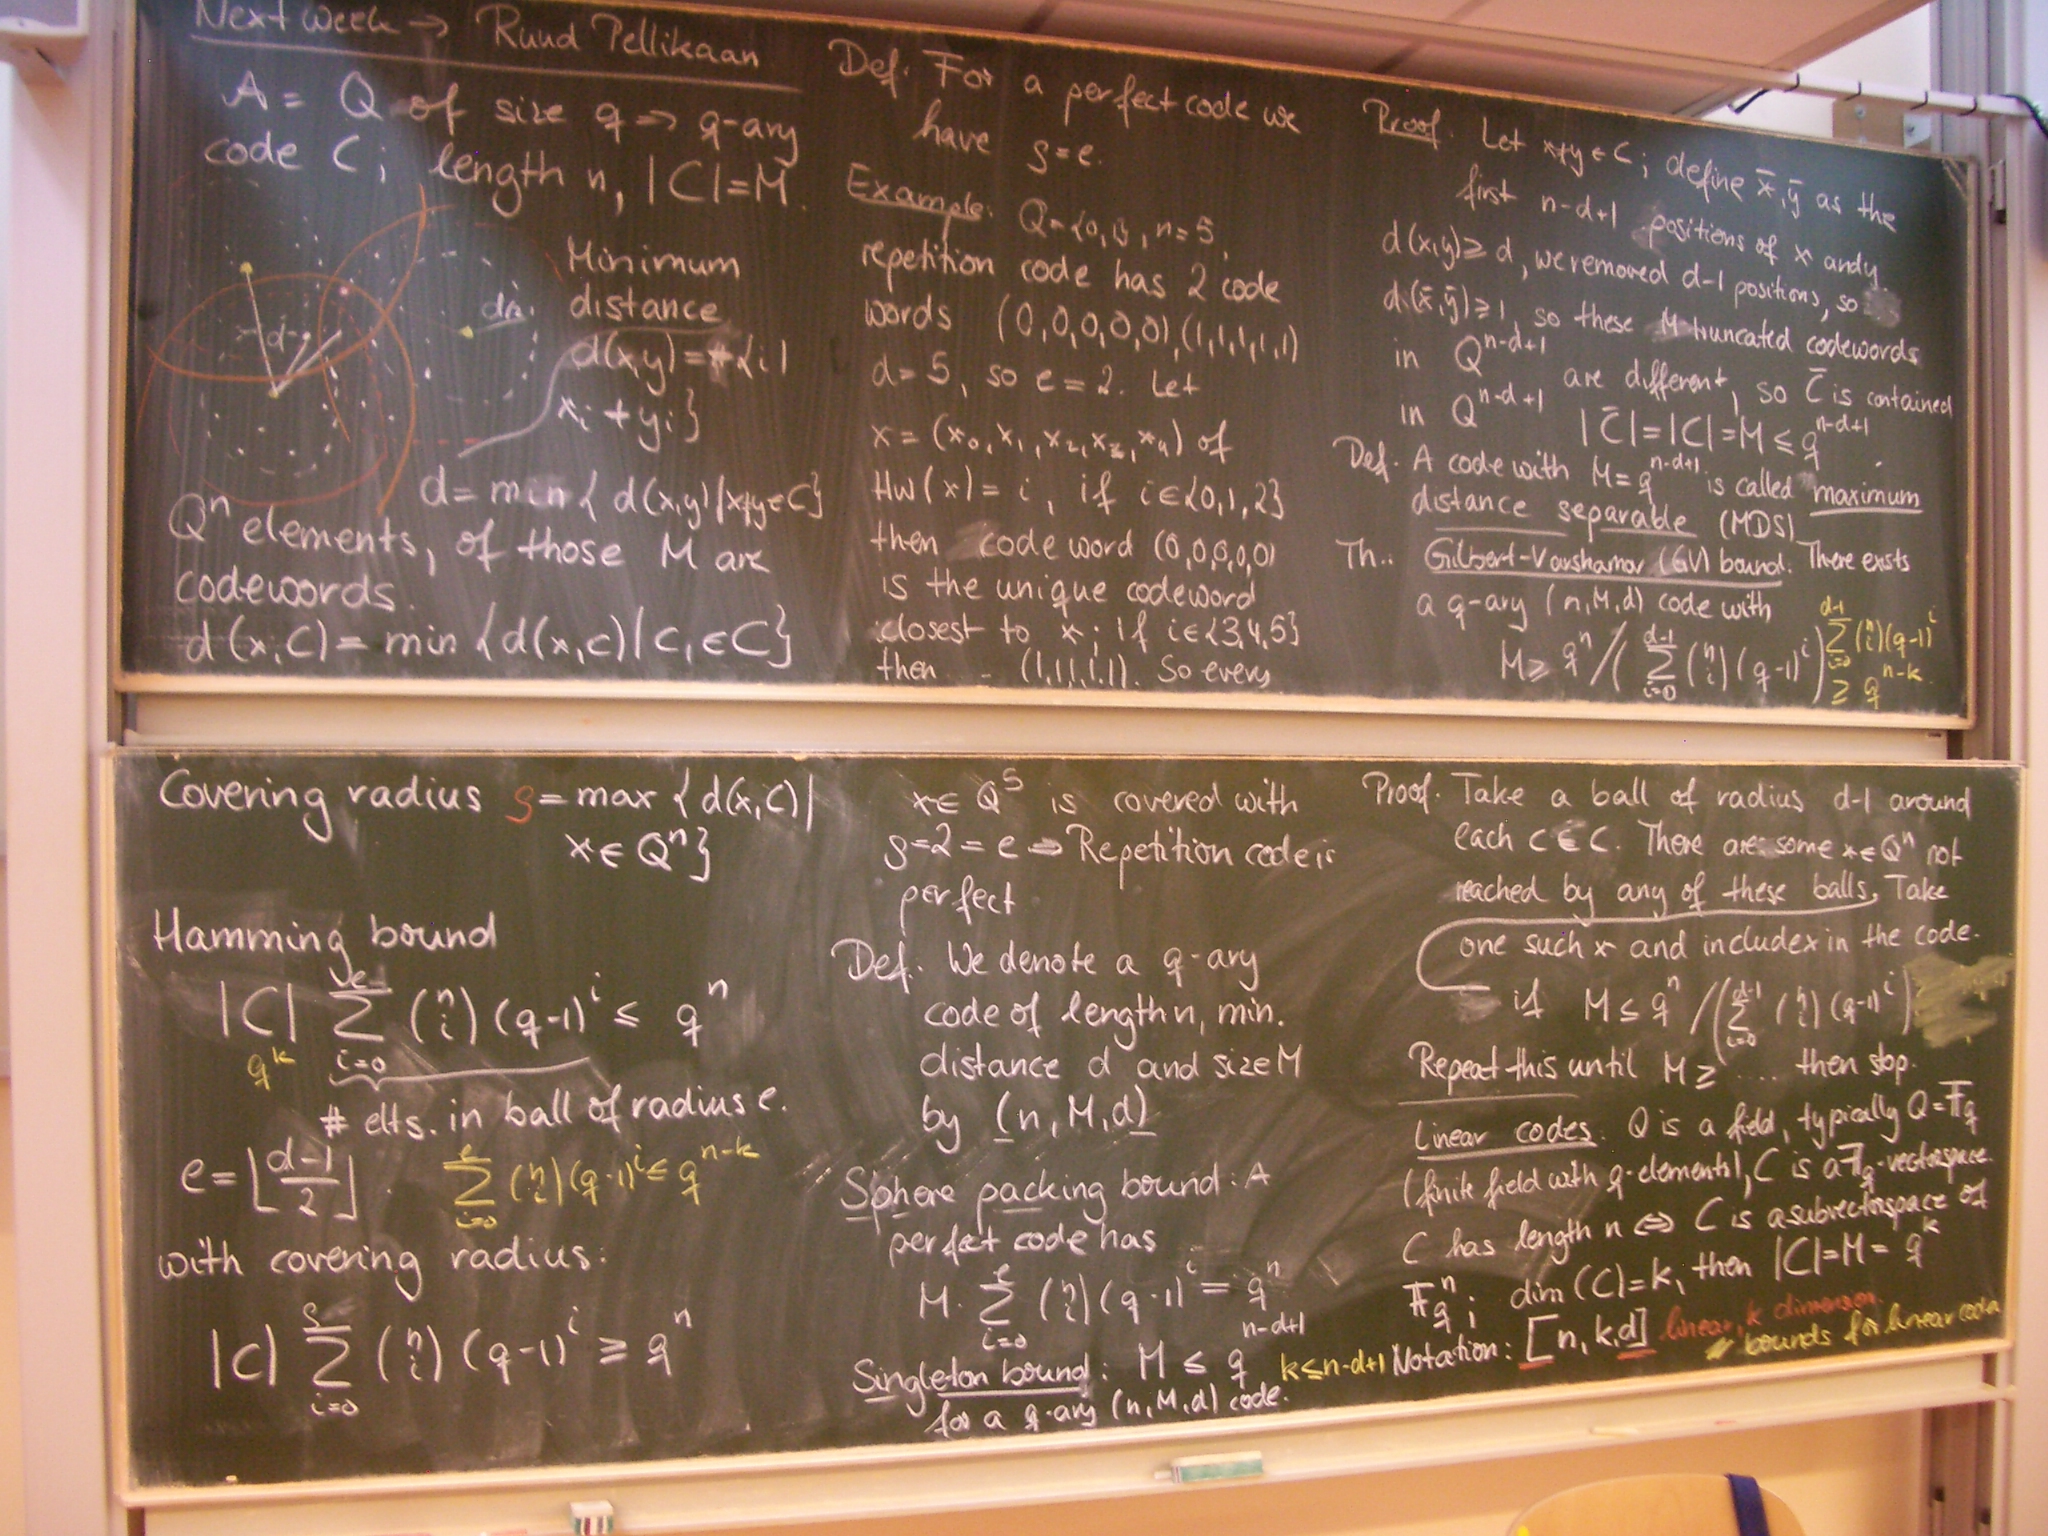 Next week → Ruud Pellikaan
A = Q of size q ⇒ q-ary
code C; length n, |C|=M.
Minimum
distance
d(x,y) = #{i|
x_i ≠ y_i}
d
d=min{d(x,y)|x≠y∈C}
Q^n elements, of those M are
codewords.
d(x,C) = min {d(x,c)|c∈C}
Def. For a perfect code we
have ρ=e.
Example: Q={0,1}, n=5
repetition code has 2 code
words (0,0,0,0,0),(1,1,1,1,1)
d=5, so e=2. Let
x=(x_0,x_1,x_2,x_3,x_4) of
Hw(x)=i, if i∈{0,1,2}
then code word (0,0,0,0,0)
is the unique codeword
closest to x; if i∈{3,4,5}
then - (1,1,1,1,1). So every
Proof. Let x≠y∈C; define x̄,ȳ as the
first n-d+1 positions of x and y.
d(x,y)≥d, we removed d-1 positions, so
d(x̄,ȳ)≥1, so these M truncated codewords
in Q^{n-d+1} are different, so C̄ is contained
in Q^{n-d+1} |C̄|=|C|=M≤q^{n-d+1}
Def. A code with M=q^{n-d+1} is called maximum
distance separable (MDS)
Th.: Gilbert-Varshamov (GV) bound. There exists
a q-ary (n,M,d) code with
M ≥ q^n/(∑_{i=0}^{d-1} (n i)(q-1)^i)
∑_{i=0}^{d-1} (n i)(q-1)^i
≥ q^{n-k}
Covering radius ρ=max{d(x,C)|
x∈Q^n}
Hamming bound
|C| ∑_{i=0}^{e} (n i)(q-1)^i ≤ q^n
q^k
# elts. in ball of radius e.
e=⌊(d-1)/2⌋. ∑_{i=0}^{e} (n i)(q-1)^i ≤ q^{n-k}
with covering radius:
|C| ∑_{i=0}^{ρ} (n i)(q-1)^i ≥ q^n
x∈Q^5 is covered with
ρ=2=e ⇒ Repetition code is
perfect
Def. We denote a q-ary
code of length n, min.
distance d and size M
by (n,M,d)
Sphere packing bound: A
perfect code has
M·∑_{i=0}^{e} (n i)(q-1)^i = q^n
Singleton bound: M ≤ q^{n-d+1} k≤n-d+1
for a q-ary (n,M,d) code.
Proof. Take a ball of radius d-1 around
each c∈C. There are some x∈Q^n not
reached by any of these balls. Take
one such x and include x in the code.
if M ≤ q^n/(∑_{i=0}^{d-1} (n i)(q-1)^i)
Repeat this until M ≥ .... then stop.
Linear codes: Q is a field, typically Q=𝔽_q
(finite field with q elements), C is a 𝔽_q-vectorspace.
C has length n ⇔ C is a subvectorspace of
𝔽_q^n; dim(C)=k, then |C|=M=q^k
Notation: [n,k,d] linear, k dimension
bounds for linear code